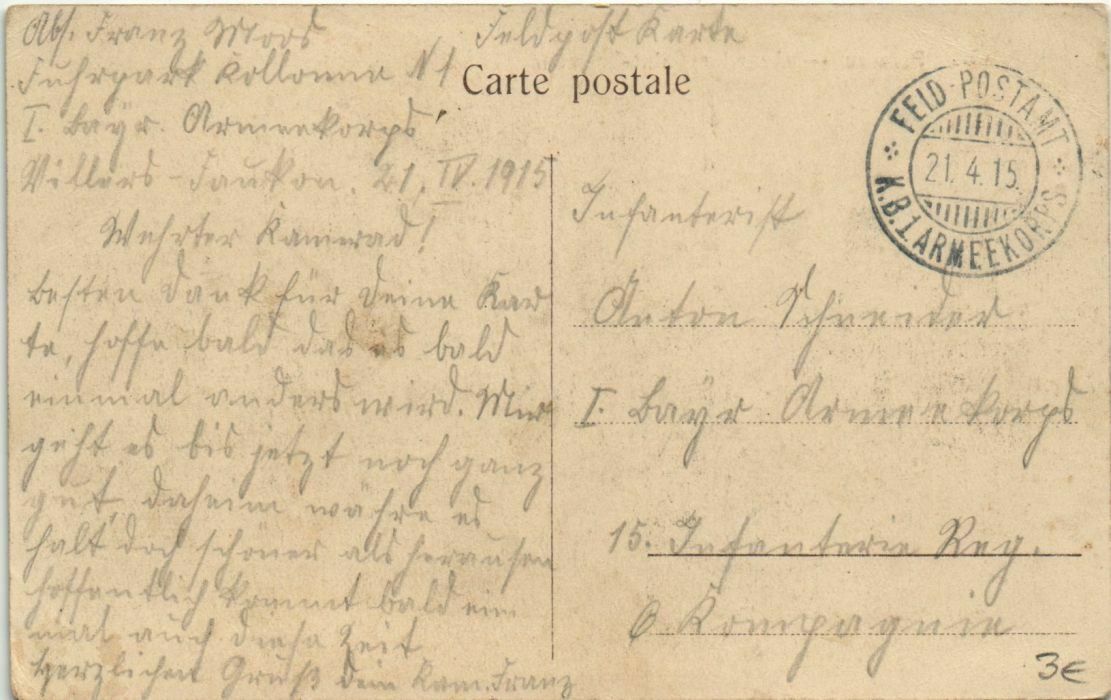 Abs. Franz Moos
Fuhrpark Kollonne N 1
I. Bayr. Armeekorps
Villers-Faukon, 21. IV. 1915
Wehrter Kamerad!
Besten Dank für Deine Kar
te, hoffe bald das es bald
einmal anders wird. Mir
geht es bis jetzt noch ganz
gut, daheim währe es
halt doch schöner als herausen
hoffentlich kommt bald ein
mal auch diese Zeit
Herzlichen Gruß dein Kam. Franz
Feldpost Karte
Carte postale
FELD-POSTAMT
21.4.15.
K.B.1 ARMEEKORPS
Infanterist
Anton Schneider
I. Bayr Armeekorps
15. Infanterie Reg.
6 Kompagnie
3€